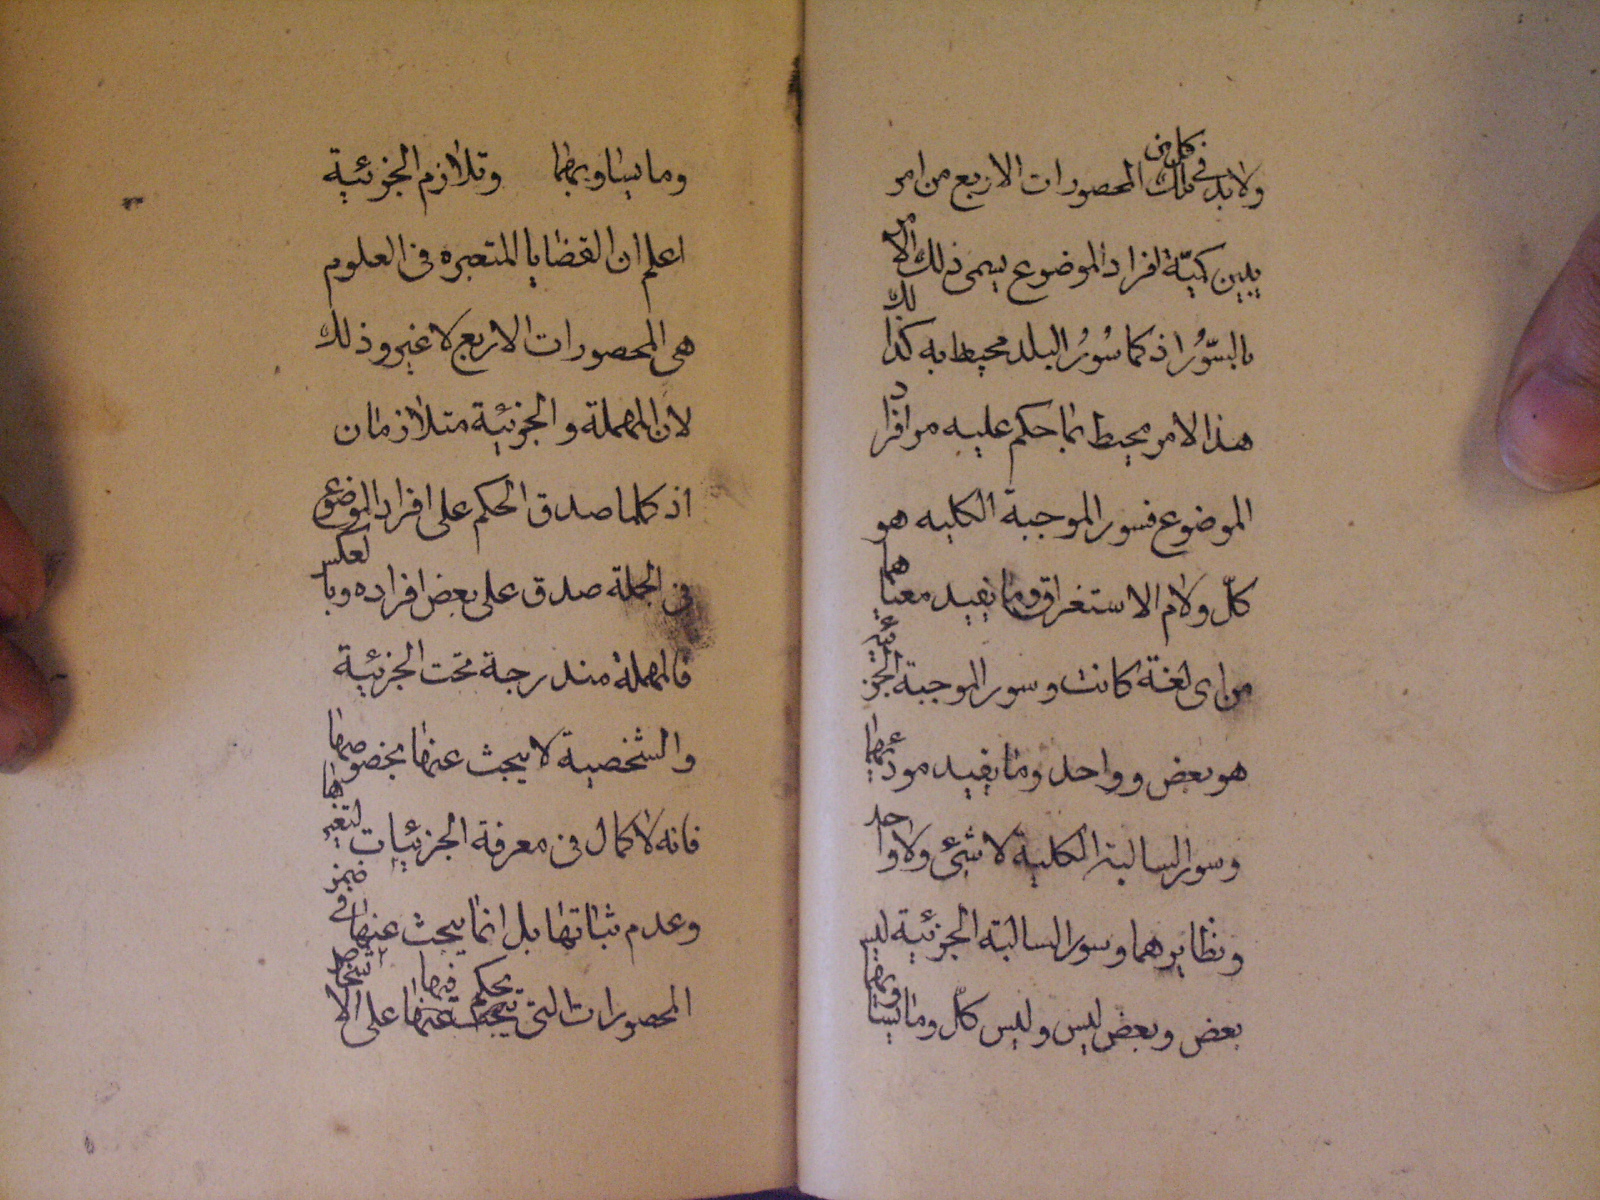 ولابد فى كل من تلك المحصورات الاربع من امر
يبين كميّة افراد الموضوع يسمى ذلك الامر
بالسّوُر اذ كما سُورُ البلد محيط به كذلك
هذا الامر محيط بما حكم عليه من افراد
الموضوع فسور الموجبة الكليه هو
كلّ ولام الاستغراق وما يفيد معناهما
من اى لغة كانت وسور الموجبة الجزئية
هو بعض وواحد وما يفيد مودّيهما
وسور السالبة الكلية لا شئ ولا واحد
ونظايرهما وسور السالبة الجزئية ليس
بعض وبعض ليس وليس كلّ وما يساويها
وما يساويهما وتلازم الجزئية
اعلم ان القضايا المتعبره فى العلوم
هى المحصورات الاربع لا غير وذلك
لان المهملة والجزئية متلازمان
اذ كلما صدق الحكم على افراد الموضوع
فى الجملة صدق على بعض افراده وبالعكس
فالمهملة مندرجة تحت الجزئية
والشخصية لا يبحث عنها بخصوصها
فانه لا كمال فى معرفة الجزئيات لتغيرها
وعدم ثباتها بل انما يبحث عنها فى ضمن
المحصورات التى يحكم فيها على الاشخاص